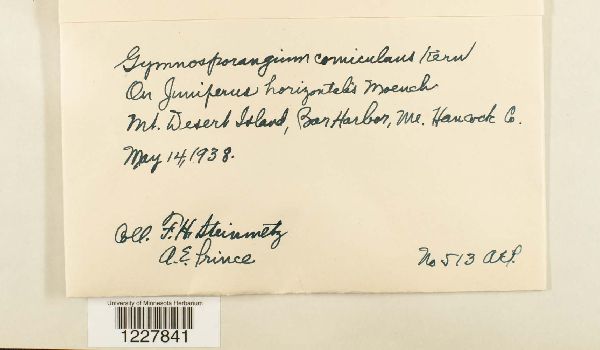 Gymnosporangium corniculans Kern
On Juniperus horizontalis Moench
Mt. Desert Island, Bar Harbor, Me. Hancock Co.
May 14, 1938.
Coll. F.H. Steinmetz
A.E. Prince
No 513 AEP.
University of Minnesota Herbarium
1227841